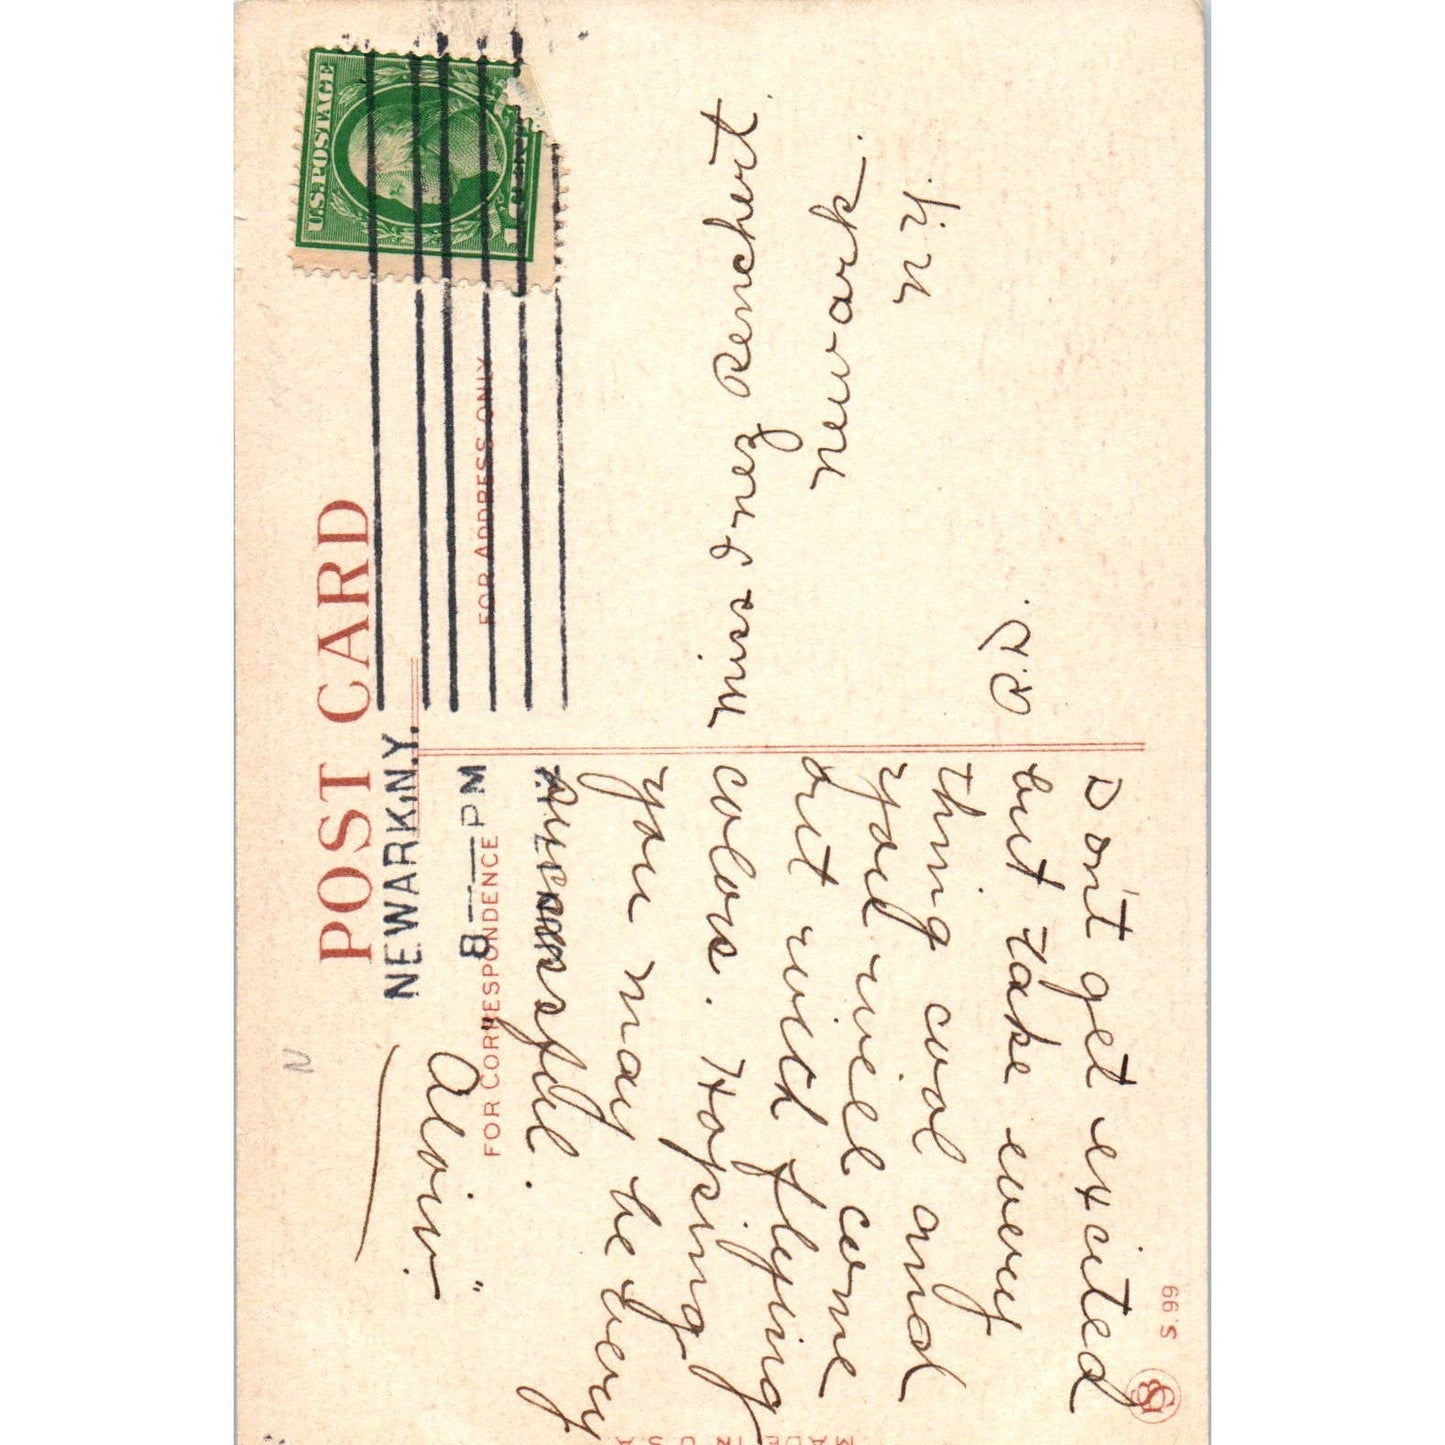 POST CARD
NEWARK, N.Y.
8 — PM
FOR CORRESPONDENCE
FOR ADDRESS ONLY
U.S. POSTAGE
1
Miss Inez Renchert
Newark.
N.Y.
R.D.
Don't get excited
but take every
thing cool and
you will come
out with flying
colors. Hoping
you may be very
successful.
"Alvin."
S. 99
MADE IN U.S.A.
N